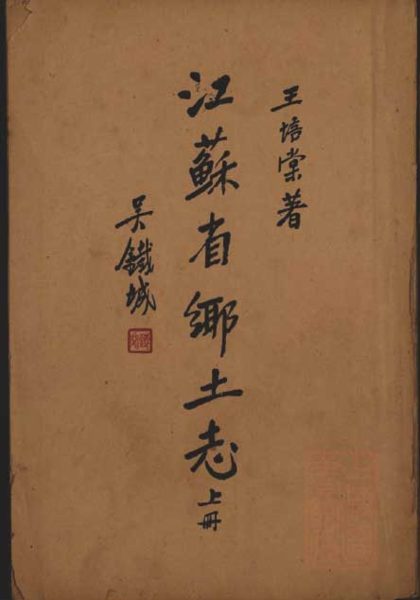 王培棠著
江蘇省鄉土志
上册
吴鐵城